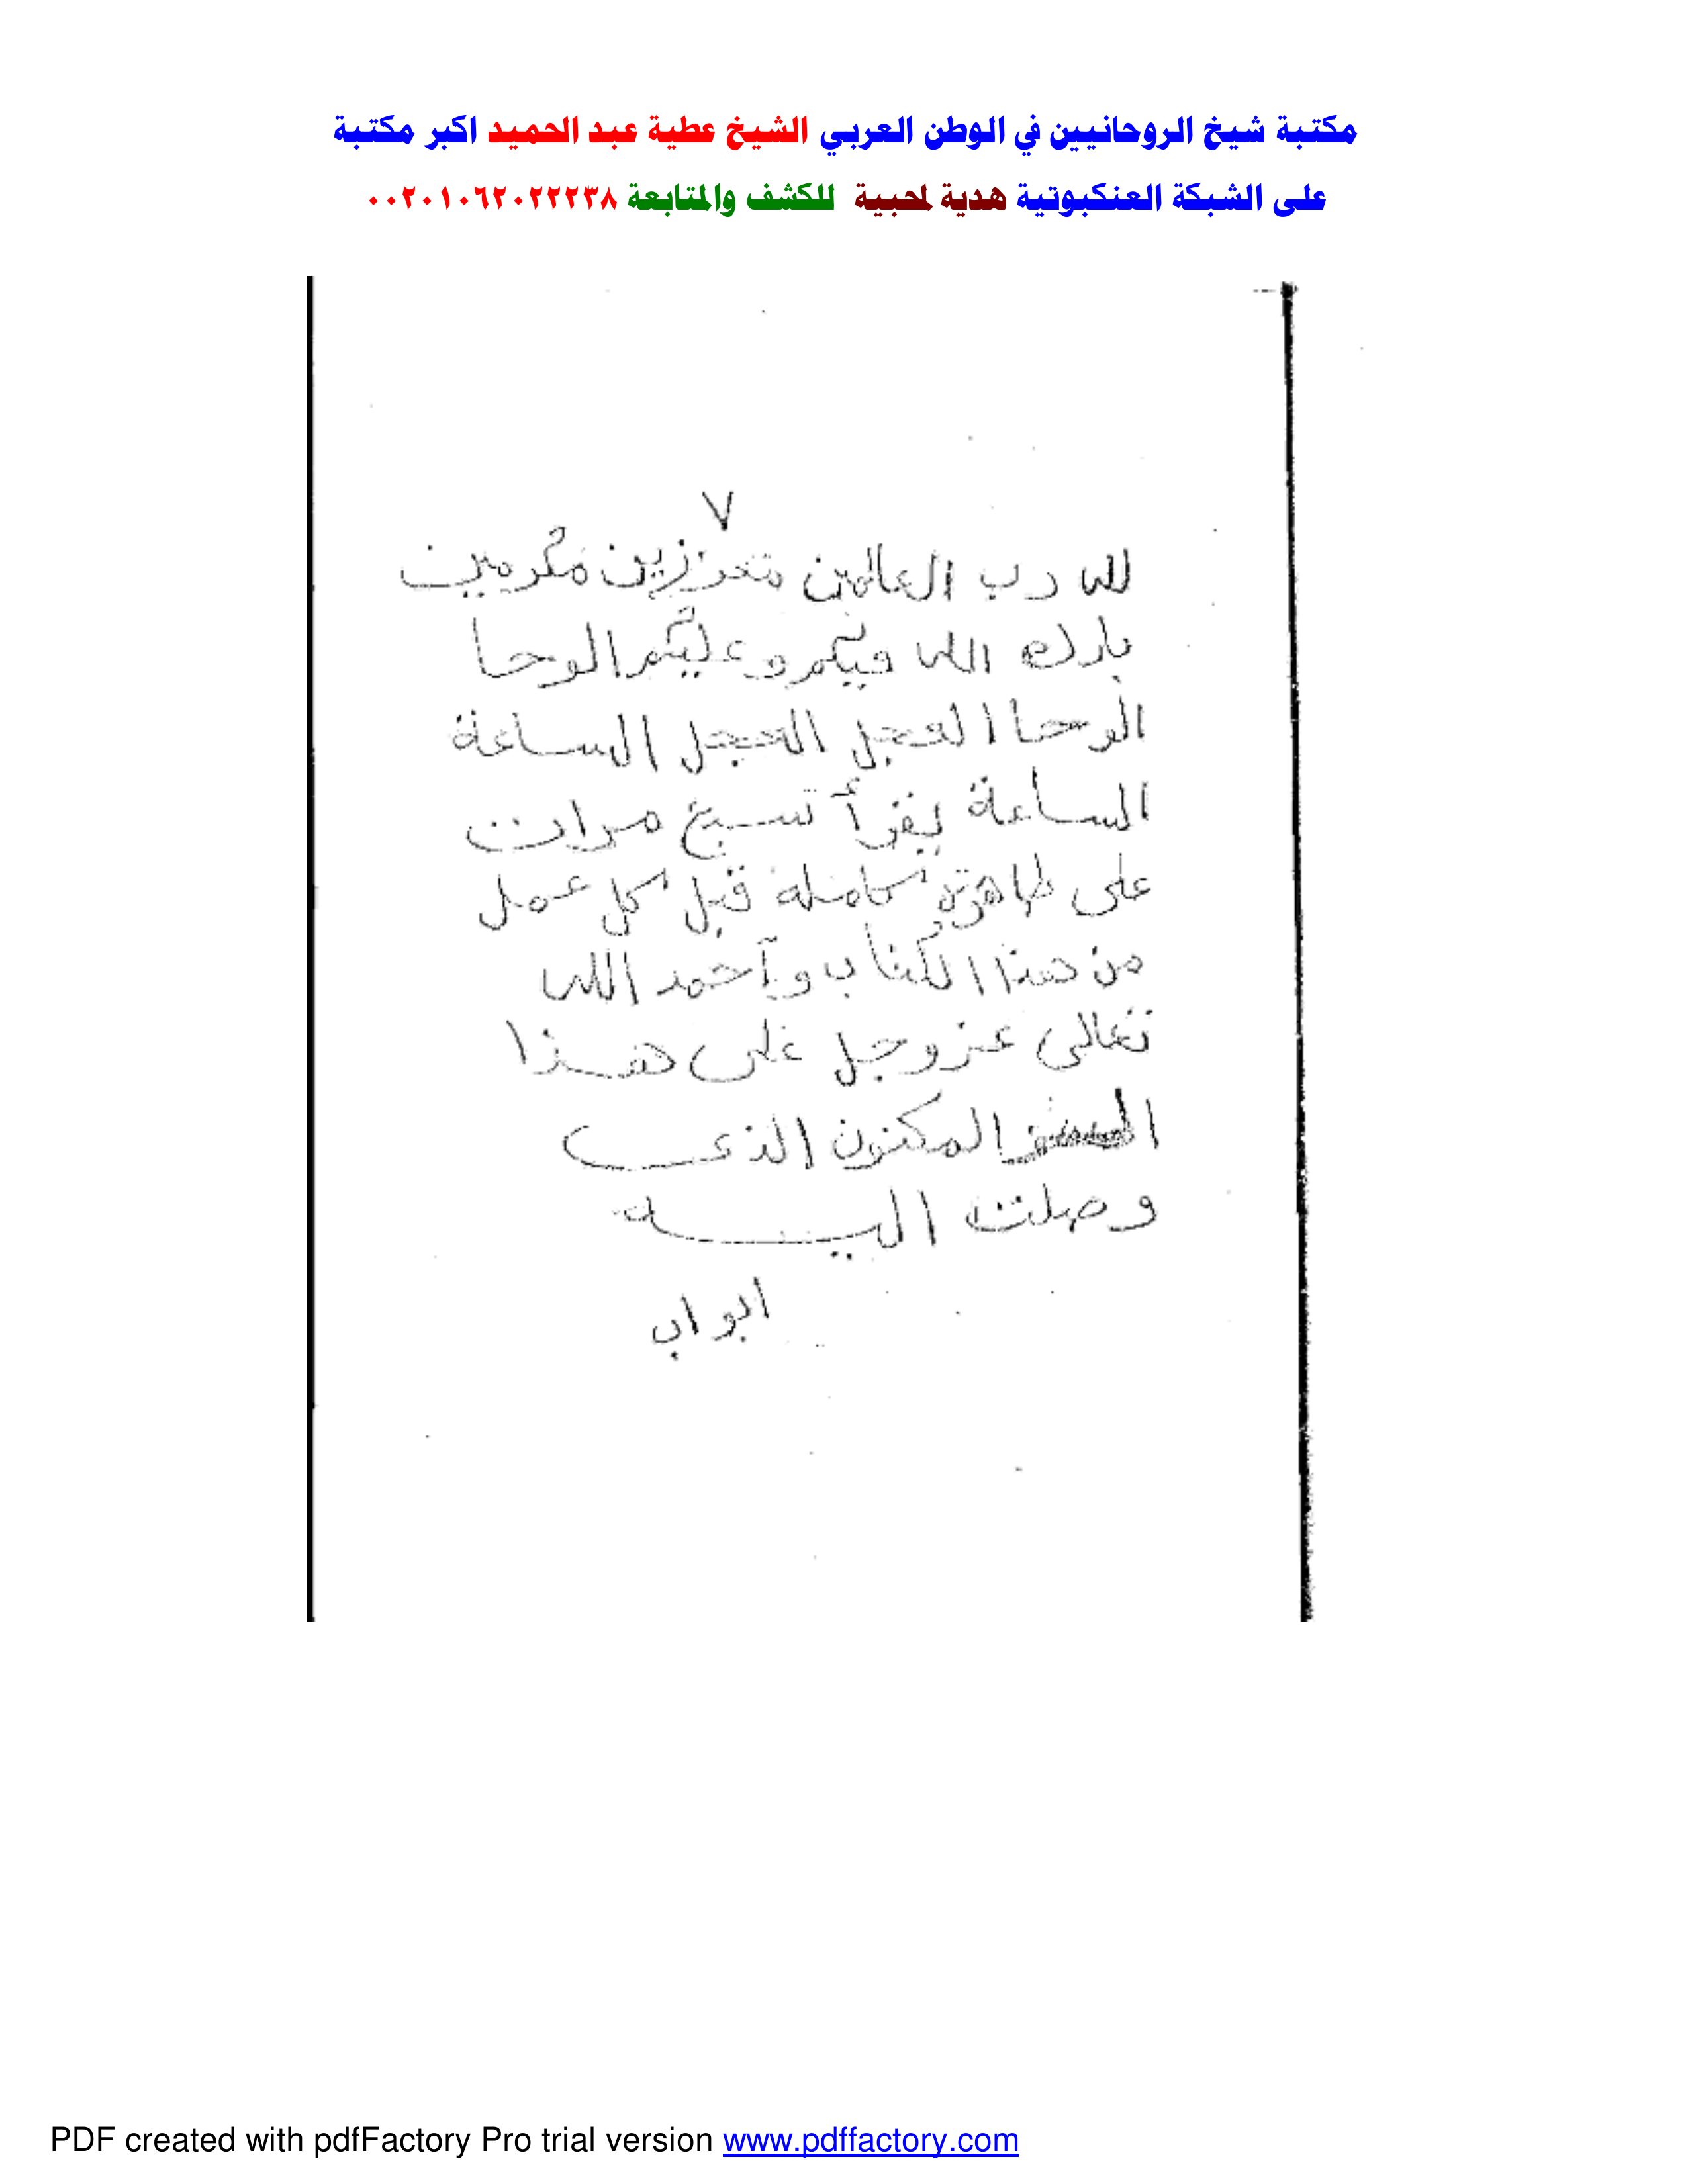 مكتبة شيخ الروحانيين في الوطن العربي الشيخ عطية عبد الحميد اكبر مكتبة
على الشبكة العنكبوتية هدية لمحبية للكشف والمتابعة ٠٠٢٠١٠٦٢٠٢٢٢٣٨
٧
لله رب العالمين معززين مكرمين
بارك الله فيكم وعليكم الوحا
الوحا العجل العجل الساعة
الساعة يقرأ سبع مرات
على طاهرة كامله قبل كل عمل
من هذا الكتاب وأحمد الله
تعالى عز وجل على هذا
المكنون الذى
وصلت اليه
ابواب
PDF created with pdfFactory Pro trial version www.pdffactory.com